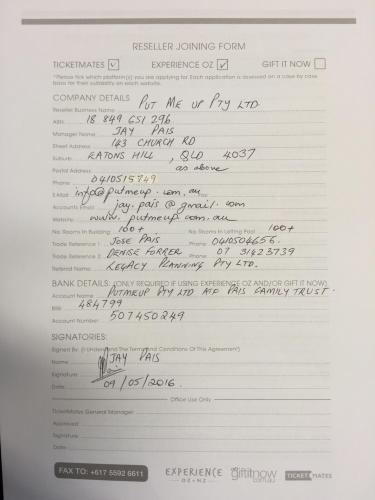 RESELLER JOINING FORM
TICKETMATES ✓ EXPERIENCE OZ ✓ GIFT IT NOW
*Please tick which platform(s) you are applying for. Each application is assessed on a case by case
basis for their suitability on each website.
COMPANY DETAILS
Reseller Business Name PUT ME UP PTY LTD
ABN 18 849 651 296
Manager Name JAY PAIS
Street Address 143 CHURCH RD
Suburb EATONS HILL, QLD 4037
Postal Address as above
Phone 0410515749
E-Mail info@putmeup.com.au
Accounts Email jay.pais@gmail.com
Website www.putmeup.com.au
No. Rooms in Building 100+ No. Rooms in Letting Pool 100+
Trade Reference 1 JOSE PAIS Phone 0410504656
Trade Reference 2 DENISE FORRER Phone 07 31623739
Referral Name LEGACY PLANNING PTY LTD.
BANK DETAILS: (ONLY REQUIRED IF USING EXPERIENCE OZ AND/OR GIFT IT NOW)
Account Name PUTMEUP PTY LTD ATF PAIS FAMILY TRUST
BSB 484799
Account Number 507450249
SIGNATORIES:
Signed By: (I Understand The Terms and Conditions Of This Agreement)
Name JAY PAIS
Signature
Date 09/05/2016.
Office Use Only
TicketMates General Manager
Approved
Signature
Date
FAX TO: +617 5592 6611 EXPERIENCE OZ+NZ giftitnow.com.au TICKETMATES